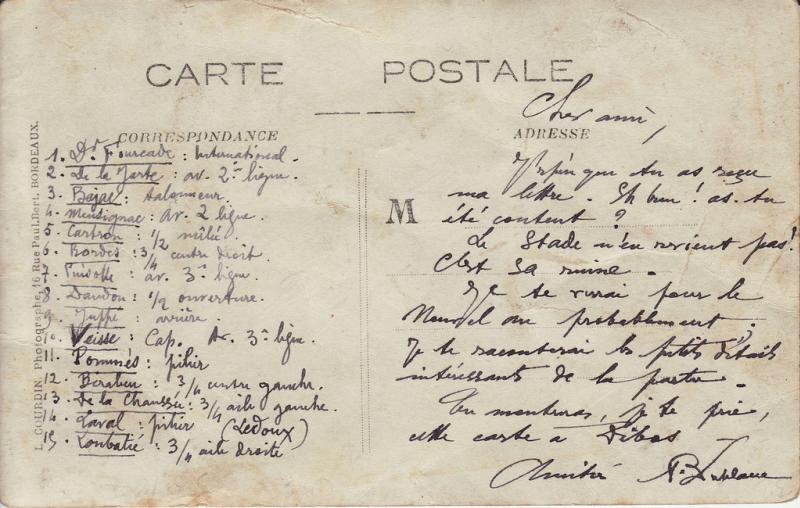 CARTE POSTALE
CORRESPONDANCE
1. Dr Fourcade : International.
2. De la Jarte : av. 2e ligne.
3. Bajac : talonneur.
4. Mensignac : Av. 2 ligne.
5. Cartron : 1/2 mêlée.
6. Bordes : 3/4 centre droit.
7. : av. 3e ligne.
8. Daudou : 1/2 ouverture.
9. Juppé : arrière.
10. Veisse : Cap. Av. 3e ligne.
11. Pommès : pilier
12. : 3/4 centre gauche.
13. De la Chaussée : 3/4 aile gauche.
14. Laval : pilier (Ledoux)
15. Loubatié : 3/4 aile droite
L. GOURDIN, Photographe, 16 Rue Paul-Bert, BORDEAUX.
ADRESSE
M
Cher ami,
que tu as reçu
ma lettre. Eh bien! as-tu
été content ?
Le Stade n'en revient pas!
C'est sa ruine.
Je te verrai pour le
Nouvel an probablement.
Je te raconterai les petits détails
intéressants de la partie.
Tu montreras, je te prie,
cette carte à Dibos
Amitié